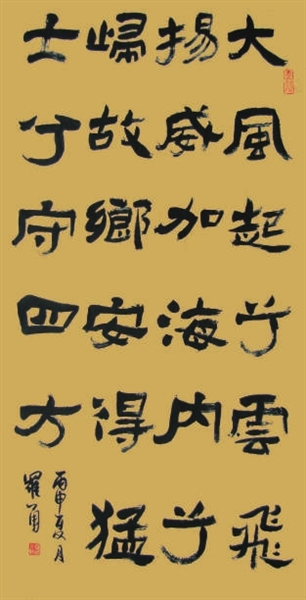 大風起兮雲飛
揚威加海内兮
歸故鄉安得猛
士兮守四方
丙申夏月
羅勇